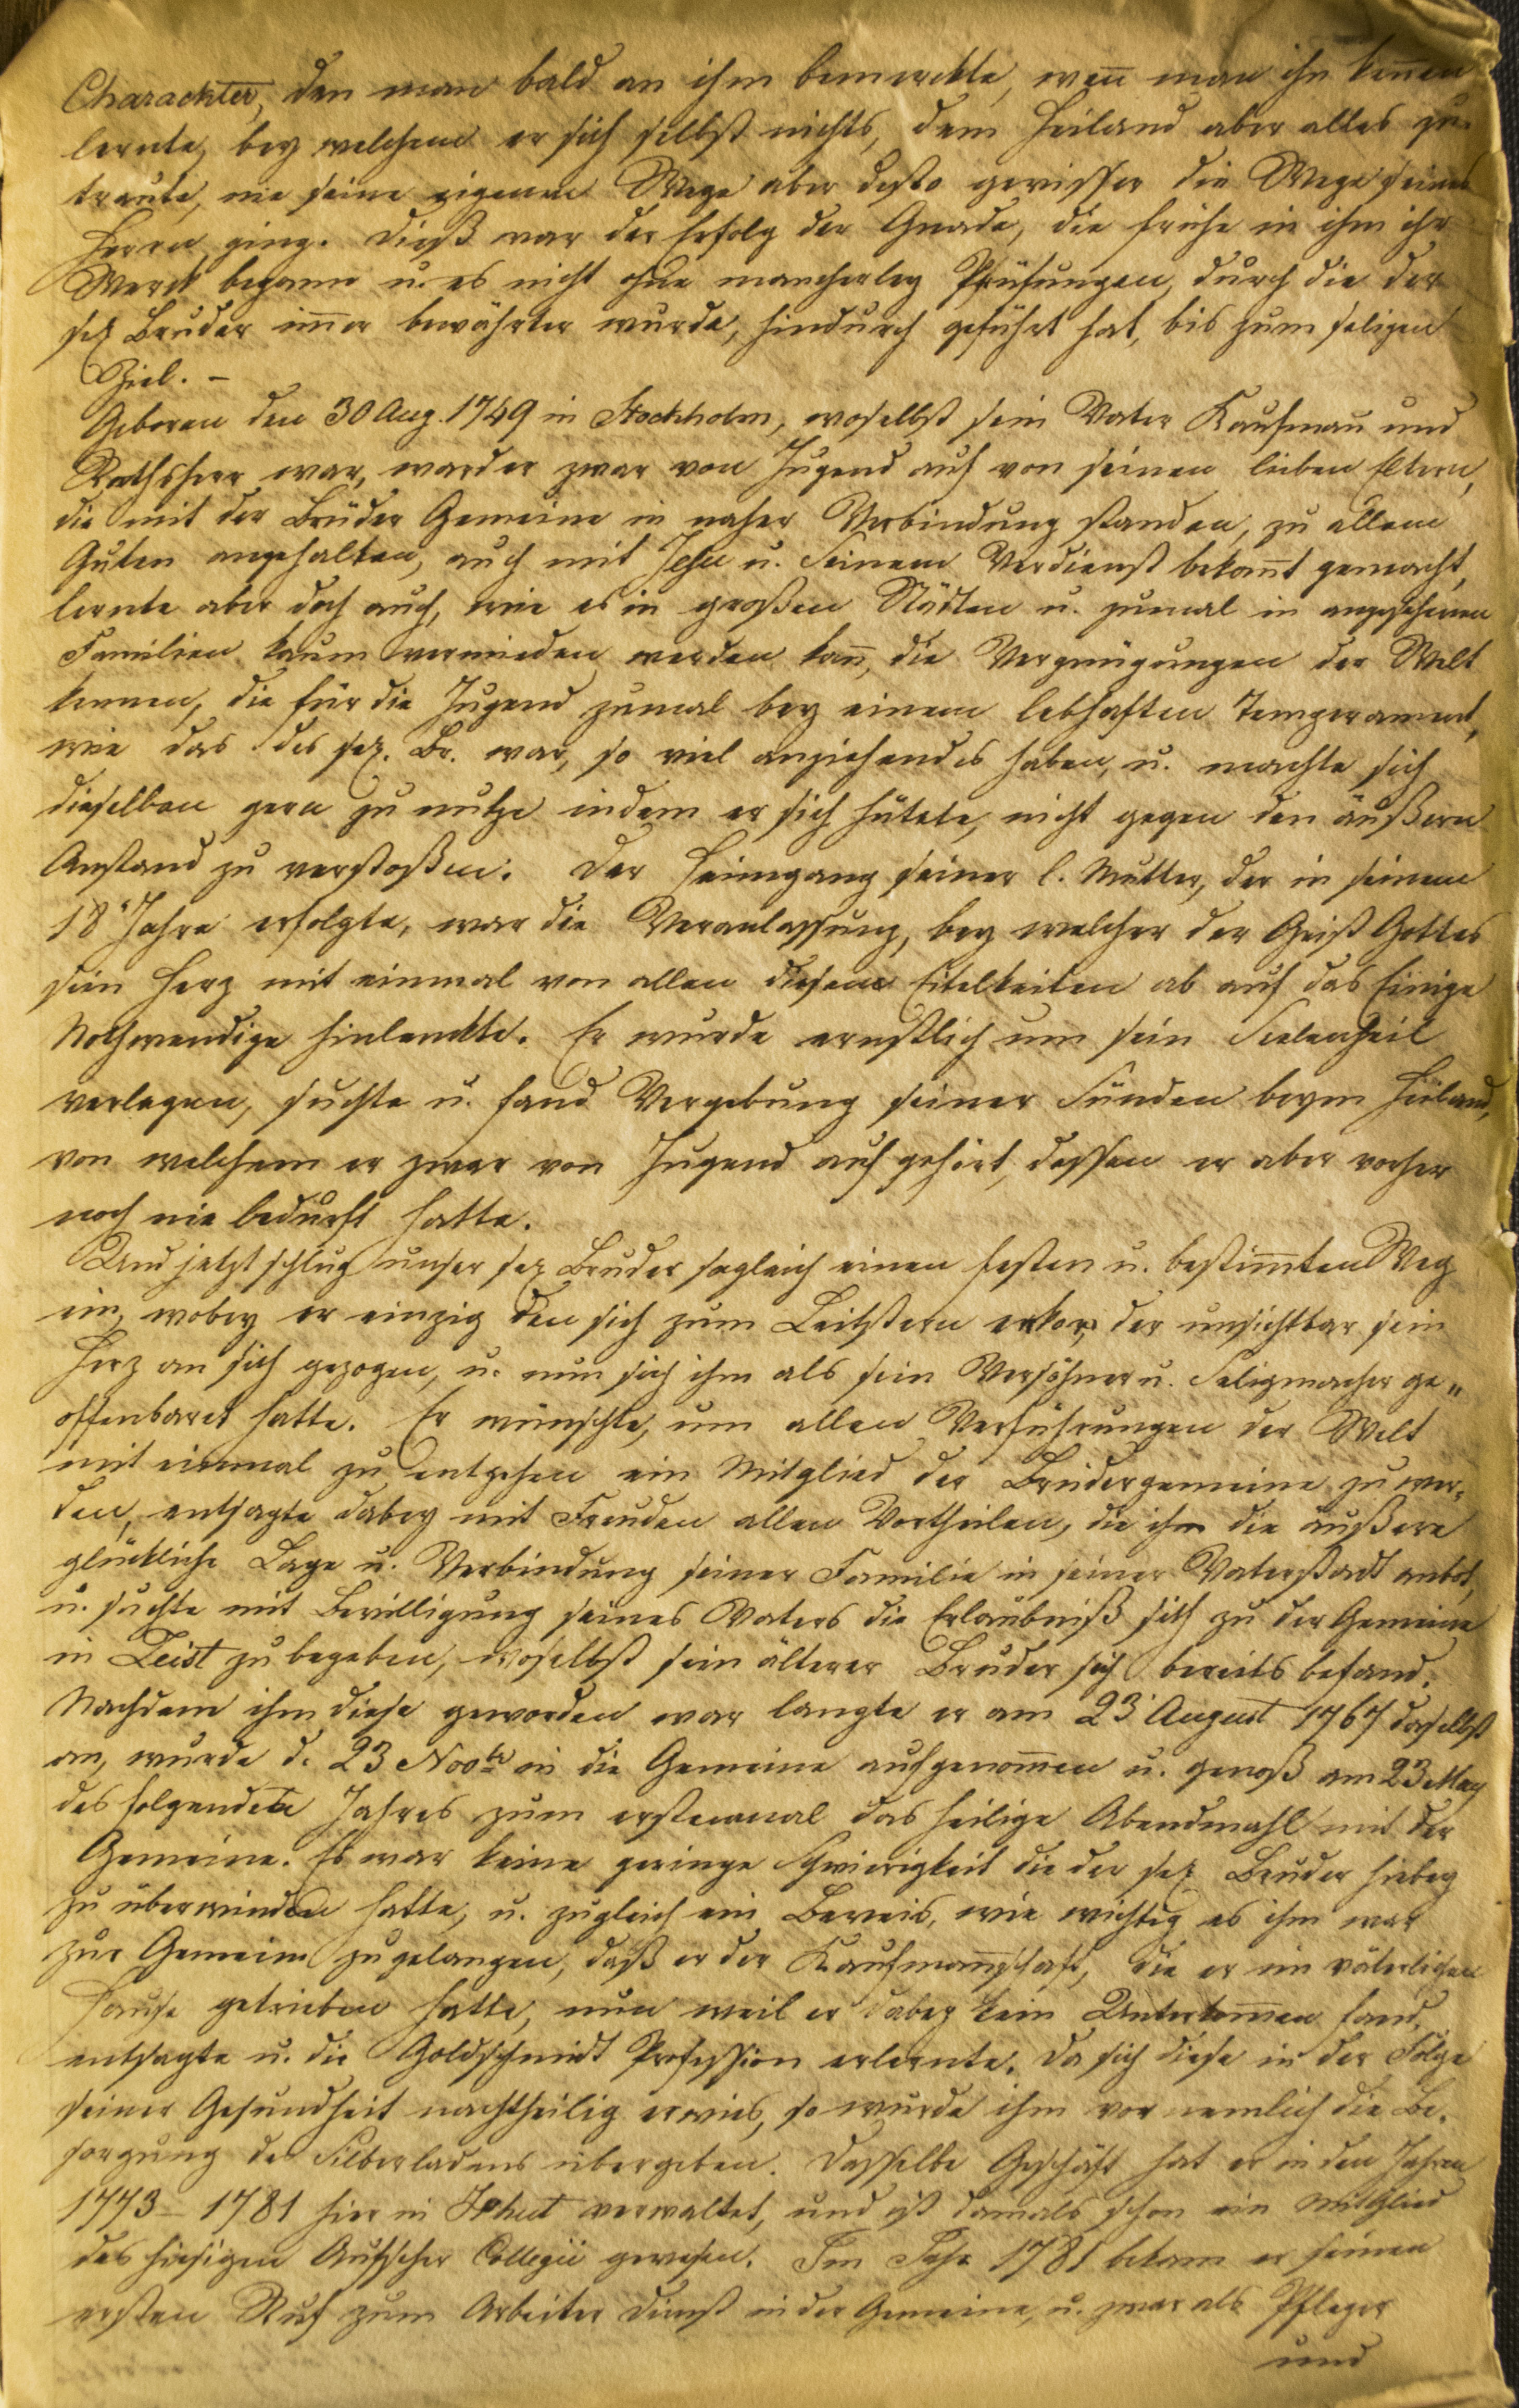 Charackter, den man bald an ihm bemerckte, wen̅ man ihn kennen
lernte, bey welchem er sich selbst nichts, dem Heiland aber alles zu-
traute, nie seine eigenen Wege aber desto gewisser die Wege seines
Herrn ging. Dieß war der Erfolg der Gnade, die frühe in ihm ihr
Werck begann u. es nicht ohne mancherley Prüfungen, durch die der
sel. Bruder im̅er bewährter wurde, hindurch geführt hat, bis zum seligen
Ziel. –
Geboren den 30 Aug. 1749 in Stockholm, woselbst sein Vater Kaufman̅ und
Rathsherr war, ward er zwar von Jugend auf von seinen lieben Eltern,
die mit der Brüder Gemeine in naher Verbindung standen, zu allem
Guten angehalten, auch mit Jesu u. Seinem Verdienst bekan̅t gemacht,
lernte aber doch auch, wie es in großen Städten u. zumal in angesehenen
Familien kaum vermieden werden kan̅, die Vergnügungen der Welt
kennen, die für die Jugend zumal bey einem lebhaften Temperament,
wie das des sel. Br. war, so viel anziehendes haben, u. machte sich
dieselben gern zu nutze indem er sich hütete, nicht gegen den äußern
Anstand zu verstoßen. Der Heimgang seiner l. Mutter, der in seinem
18. Jahre erfolgte, war die Veranlassung, bey welcher der Geist Gottes
sein Herz mit einmal von allen diesen Eitelkeiten ab auf das Einige
Nothwendige hinlenckte. Er wurde ernstlich um sein Seelenheil
verlegen, suchte u. fand Vergebung seiner Sünden beym Heiland,
von welchem er zwar von Jugend auf gehört, dessen er aber vorher
noch nie bedurft hatte.
Und jetzt schlug unser sel. Bruder sogleich einen festen u. bestim̅ten Weg
ein, wobey er einzig den sich zum Leitstern erkor, der unsichtbar sein
Herz an sich gezogen, u. nun sich ihm als sein Versöhner u. Seligmacher ge„
offenbaret hatte. Er wünschte, um allen Verführungen der Welt
mit einmal zu entgehen ein Mitglied der Brüdergemeine zu wer-
den, entsagte dabey mit Freuden allen Vortheilen, die ihm die äußere
glückliche Lage u. Verbindung seiner Familie in seiner Vaterstadt anbot,
u. suchte mit Bewilligung seines Vaters die Erlaubniß sich zu der Gemeine
in Zeist zu begeben, woselbst sein älterer Bruder sich bereits befand.
Nachdem ihm diese geworden war langte er am 23. August 1767 daselbst
an, wurde d. 23 Novbr in die Gemeine aufgenom̅en u. genoß am 23 May
des folgenden Jahres zum erstenmal das heilige Abendmahl mit der
Gemeine. Es war keine geringe Schwierigkeit die der sel. Bruder hiebey
zu überwinden hatte, u. zugleich ein Beweis, wie wichtig es ihm war
zur Gemeine zu gelangen, daß er der Kaufman̅schaft, die er im väterlichen
Hause getrieben hatte, nun weil er dabey kein Unterkom̅en fand,
entsagte u. die Goldschmidt Profession erlernte. Da sich diese in der Folge
seiner Gesundheit nachtheilig erwies, so wurde ihm vornemlich die Be-
sorgung des Silberladens übergeben. Dasselbe Geschäft hat er in den Jahren
1773 – 1781 hier in Hhut verwaltet, und ist damals schon ein Mitglied
des hiesigen Aufseher Collegii gewesen. Im Jahr 1781 bekam er seinen
ersten Ruf zum Arbeiter Dienst in der Gemeine, u. zwar als Pfleger
und